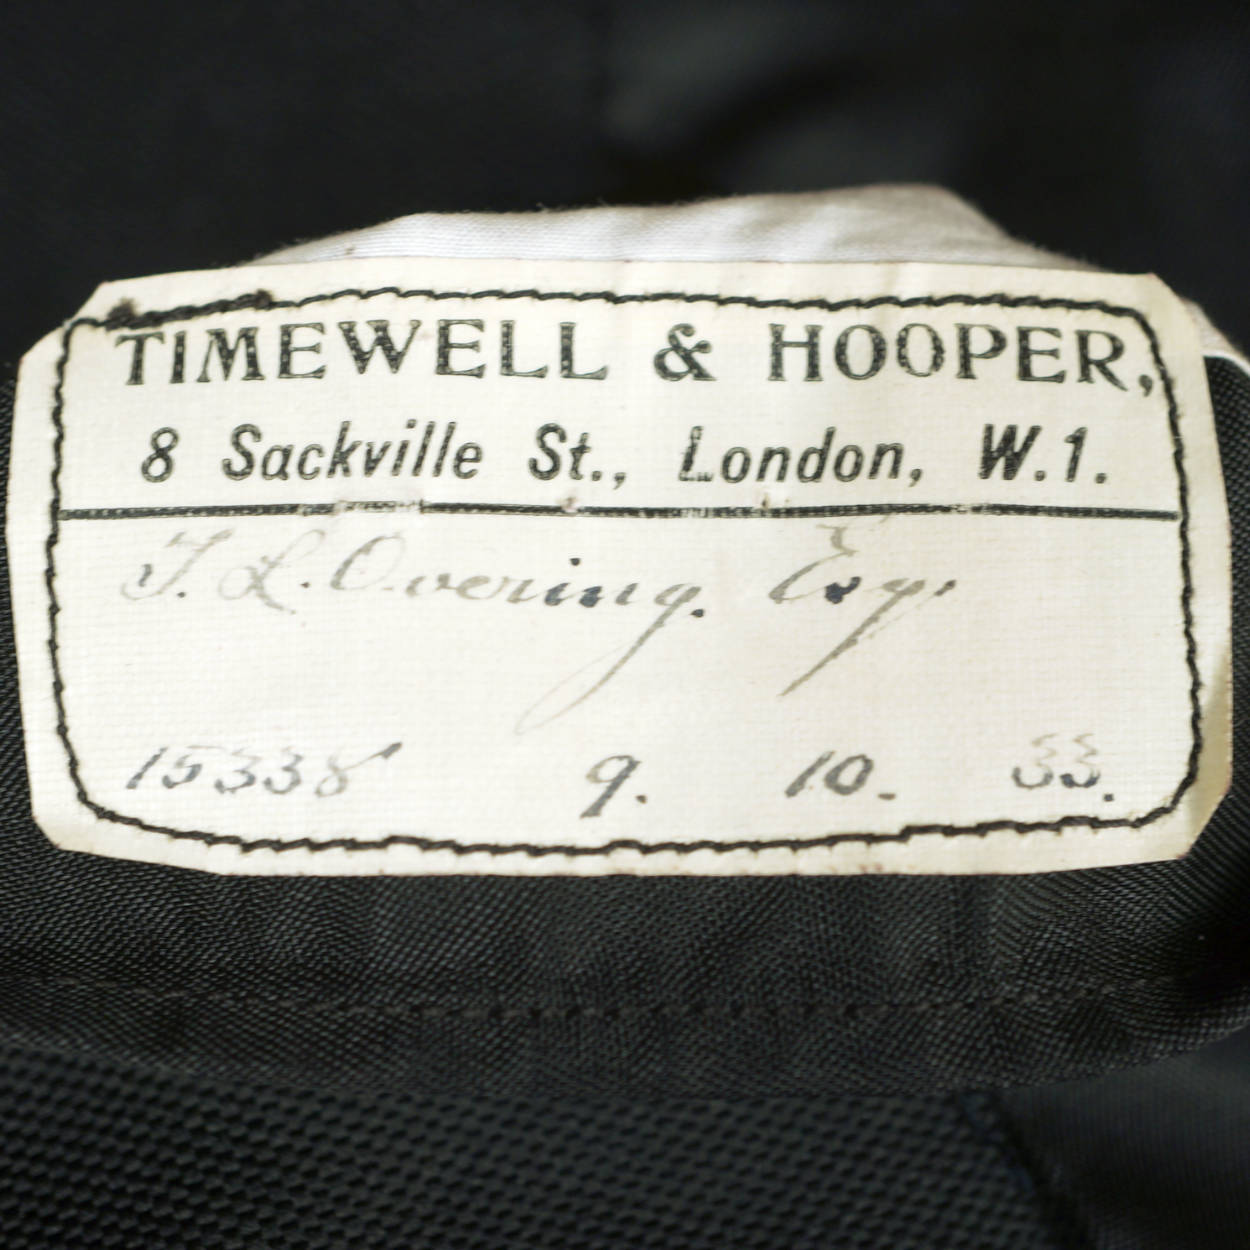 TIMEWELL & HOOPER,
8 Sackville St., London, W.1.
T. L. Overing. Esq.
15338 9. 10. 33.